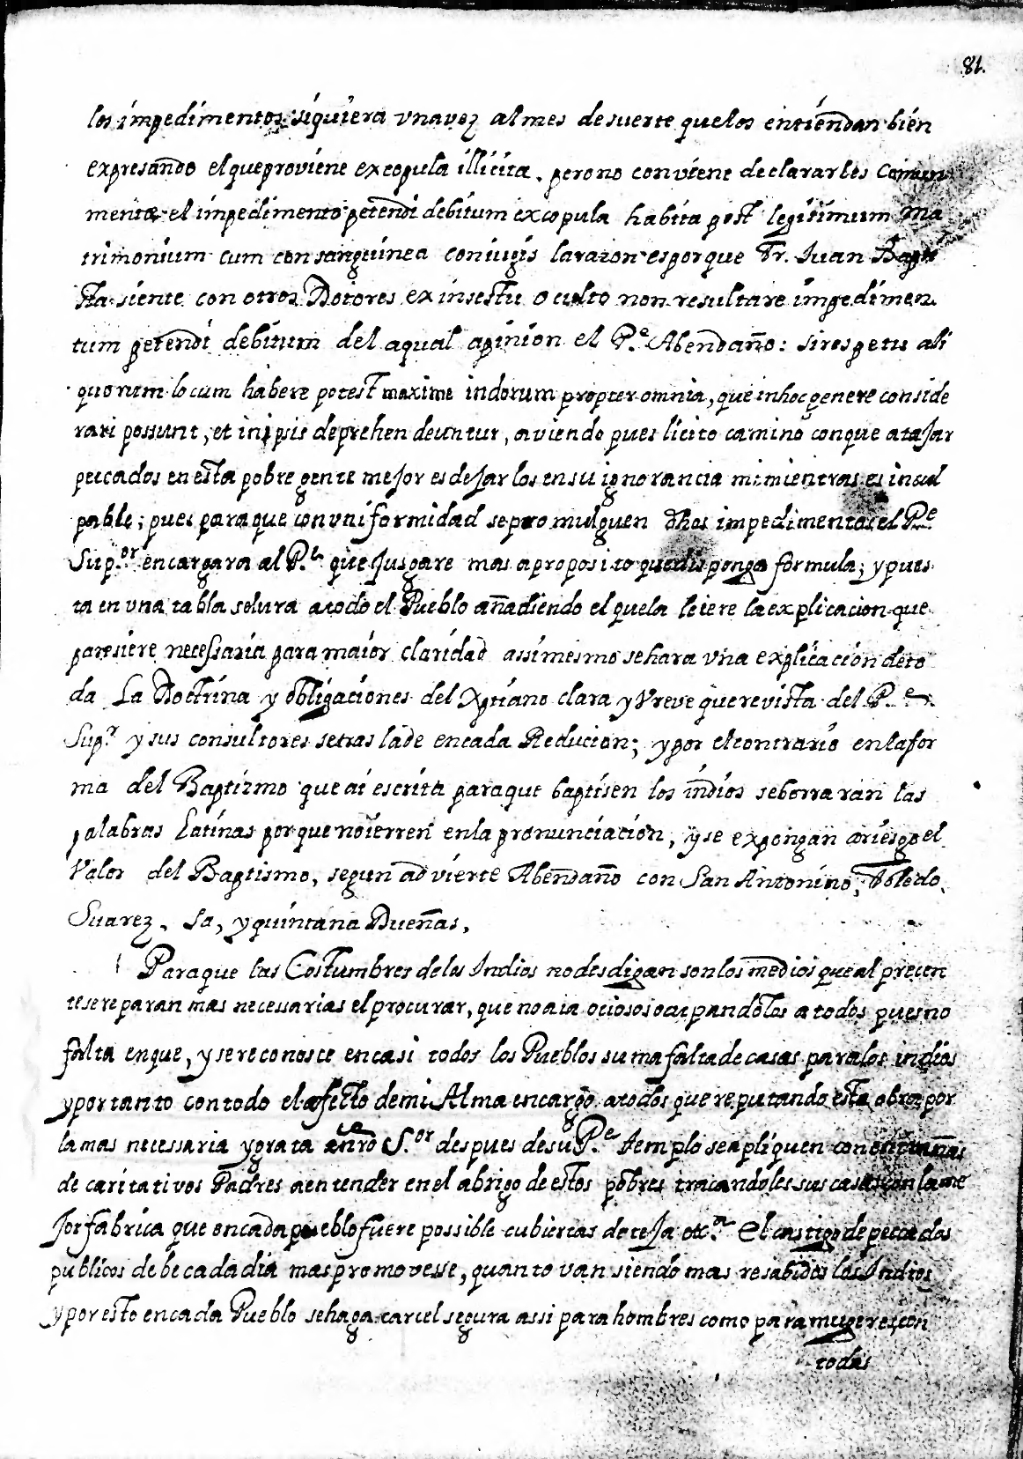 81.
los impedimentos siquiera vnavez almes desuerte quelos entiendan bien
expresando elqueproviene excopula illicita, perono conviene declararles comun
mente el impedimento petendi debitum excopula habita post legitimum ma
trimonium cum consanguinea coniugis larazon esporque Fr. Juan Bapti
sta siente con otros Dotores ex insestu oculto non resultare impedimen
tum petendi debitum del aqual opinion el P.e Abendaño: sirespetu ali
quorum locum habere potest maxime indorum propter omnia, que inhoc genere conside
rari possunt, et inipsis deprehenduntur, aviendo pues licito camino conque atajar
peccados enesta pobre gente mejor es dejarlos ensu ignorancia mimientras es incul
pable; pues paraque con vniformidad sepromulguen dhos impedimentos el P.e
Sup.or encargara al P.e que jusgare mas aproposito quedisponga formula; ypues
ta en vna tabla selura atodo el Pueblo añadiendo el quela leiere laexplicacion que
paresiere necessaria para maior claridad assimesmo sehara vna explicacion deto
da La Doctrina y obligaciones del Xptiano clara y Vreve querevista del P.e
Sup.r y sus consultores setraslade encada Reducion; ypor elcontrario enlafor
ma del Baptizmo que ai escrita paraque baptisen los indios seborraran las
palabras Latinas porquenoierren enla pronunciacion, yse expongan ariesgo el
Valor del Baptismo, segun advierte Abendaño con San Antonino, Toledo,
Suarez, Sa, yquintana Dueñas,
Paraque las Costumbres delos Indios nodesdigan sonlos medios queal precen
tesereparan mas necessarias elprocurar, que noaia ociosos ocupandolos atodos puesno
falta enque, ysereconosce encasi todos los Pueblos suma falta de casas paralos indios
yportanto contodo elafecto demi Alma encargo atodos quereputando esta obra por
lamas necessaria ygrata anro S.or despues desu P.e Templo seapliquen con entrañas
de caritativos Padres aentender enel abrigo de estos pobres tracandoles sus casas con lame
jor fabrica que encada pueblo fuere possible cubiertas de teja etc.a El castigo de peccados
publicos debe cadadia maspromovesse, quanto van siendo mas resabidos los Indios
yporesto encada Pueblo sehaga carcel segura assi para hombres como para mugeres con
todas